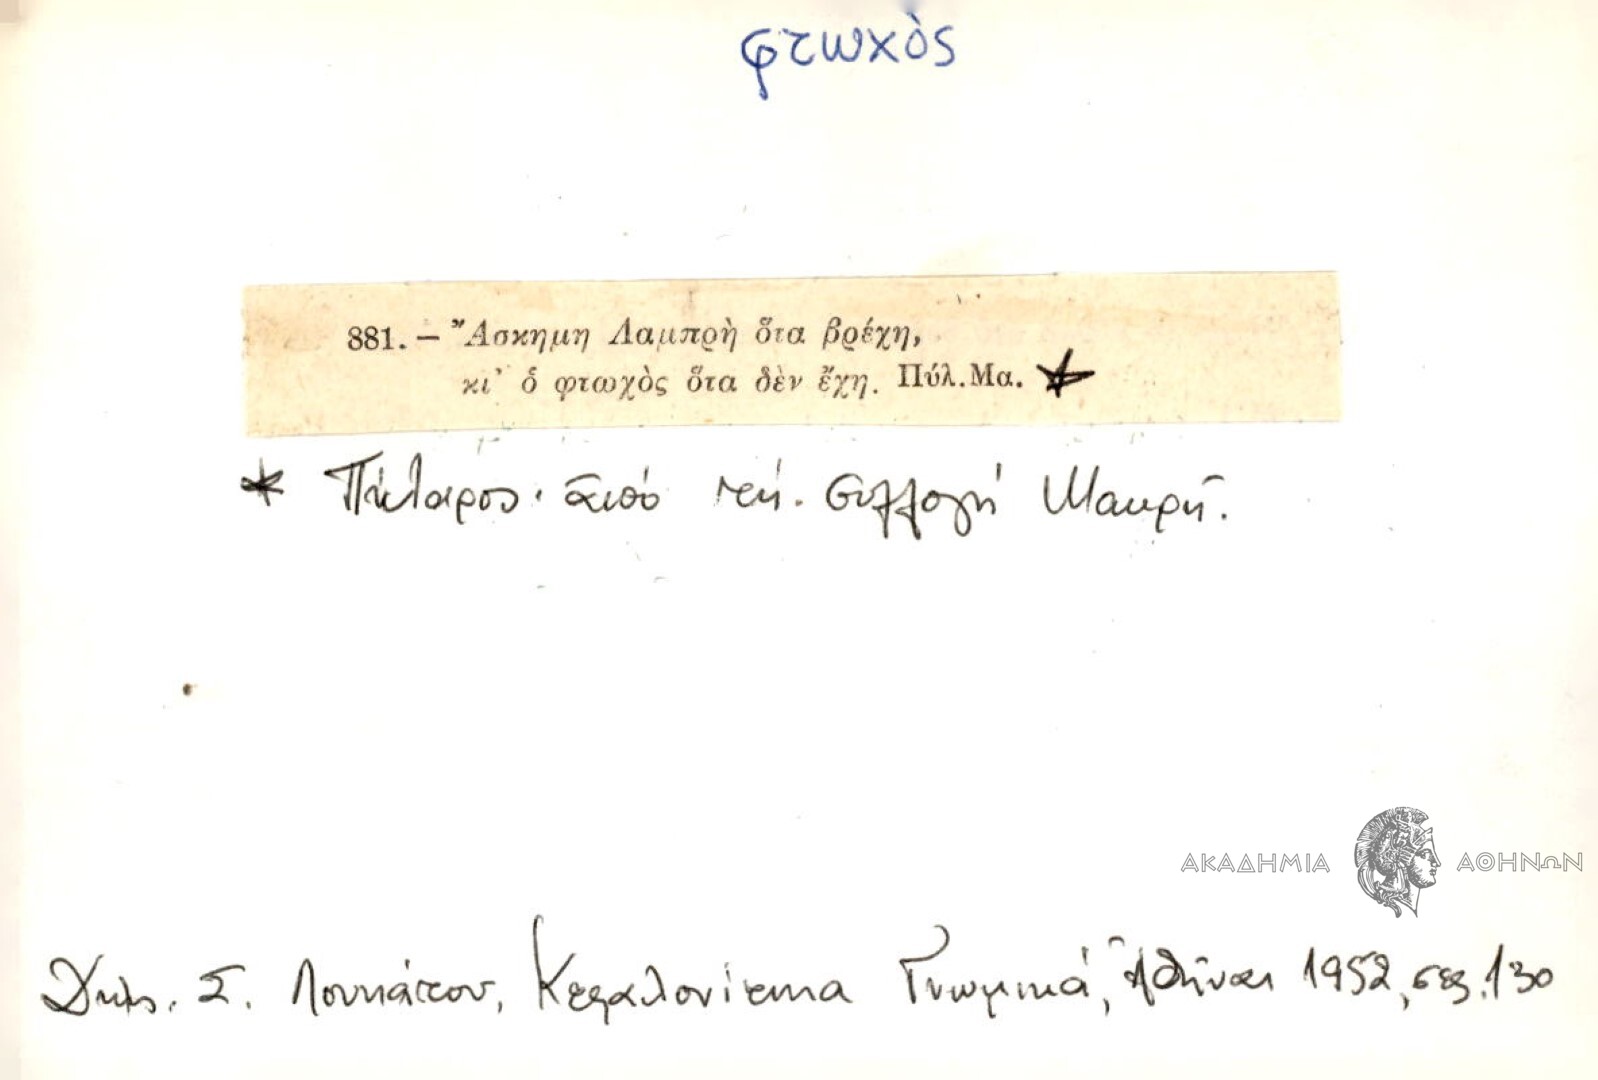 φτωχὸς
881. — Ἄσκημη Λαμπρὴ ὅτα βρέχη,
κι' ὁ φτωχὸς ὅτα δὲν ἔχη. Πύλ. Μα. *
* Πύλαρος· ἀπὸ τὴ συλλογὴ Μακρῆ.
ΑΚΑΔΗΜΙΑ ΑΘΗΝΩΝ
Δημ. Σ. Λουκάτου, Κεφαλονίτικα Γνωμικά, Ἀθῆναι 1952, σελ. 130